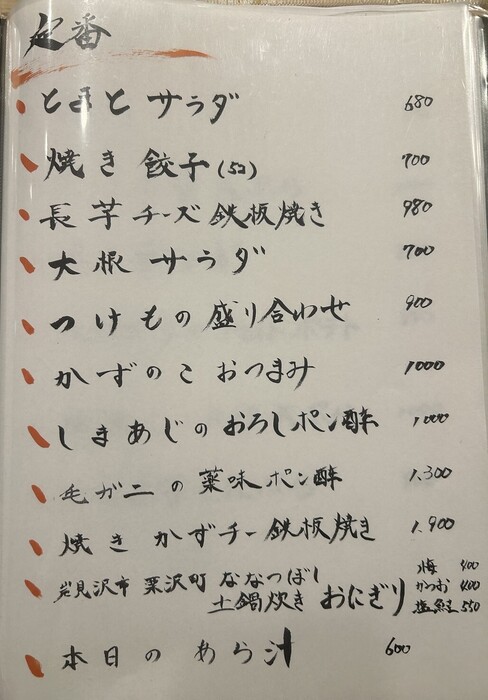 定番
とまと サラダ 680
焼き 餃子(5コ) 700
長芋 チーズ 鉄板焼き 980
大根 サラダ 700
つけもの 盛り合わせ 900
かずのこ おつまみ 1000
しまあじの おろしポン酢 1000
毛ガニ の 薬味 ポン酢 1,300
焼き かずチー 鉄板焼き 1,900
岩見沢市 栗沢町 ななつぼし
土鍋炊き おにぎり
梅 400
かつお 400
塩鮭 550
本日 の あら汁 600